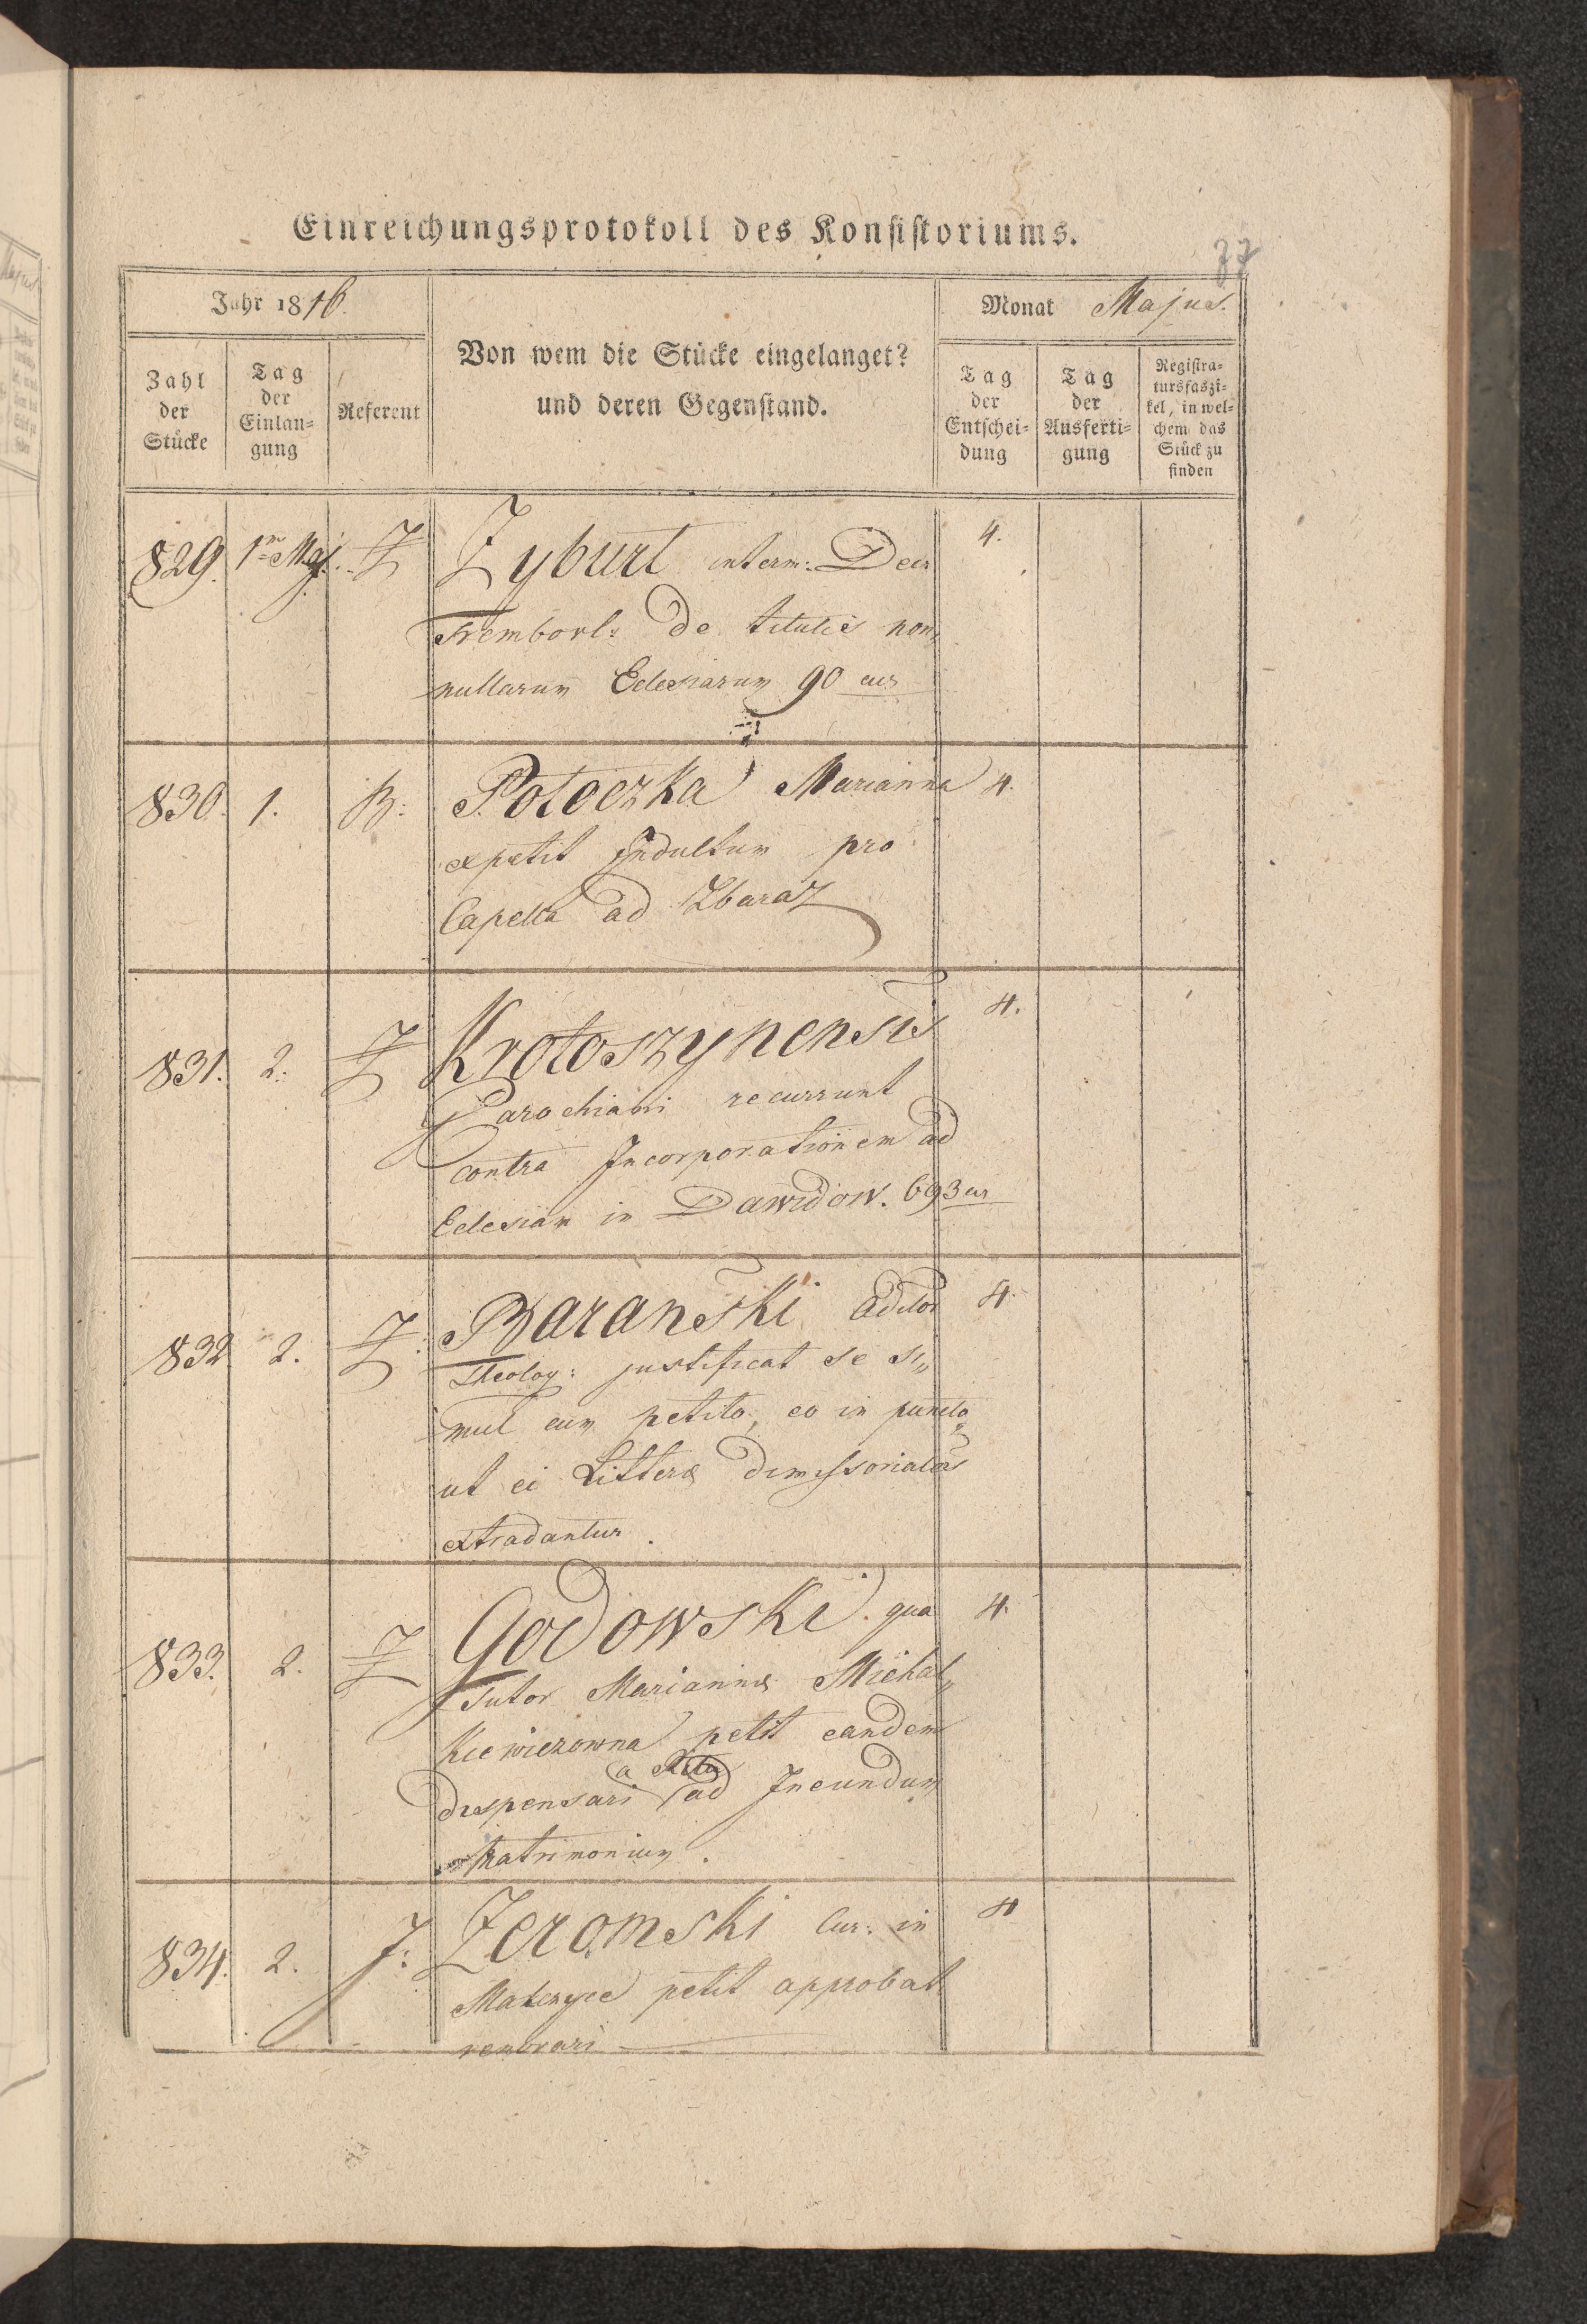 Einreichungsprotokoll des Konsistoriums.
77
Jahr 1816.
Monat Majus.
Von wem die Stücke eingelanget?
und deren Gegenstand.
Zahl
der
Stücke
Tag
der
Einlan=
gung
Referent
Tag
der
Entschei=
dung
Tag
der
Ausferti=
gung
Registra=
tursfaszi=
kel, in wel=
chem das
Stück zu
finden
829. 1ma Maj. Z Zyburt interm: Decs 4.
Trembovl: de titulis non,
nullarum Eclesiarum 90 cur
830. 1. B: Potoczka Marianna 4.
expetit Indultum pro
Capella ad Zbaraz
831. 2. Z Krotoszynensis 4.
Parochiani recurrunt
contra Incorporationem ad
Eclesiam in Dawidow. 693 cur
832 2. Z: Baranski Aditor 4.
Theolog: justificat se si„
mul cum petito, eo in puncto„
ut ei Litteræ dimissoriales
extradantur.
833. 2. Z Godowski qua 4.
Tutor Mariannæ Michal„
kiewiczowna petit eandem
a
dispensari ad Ineundum
Matrimonium.
834. 2. J: Zeromski Cur: in 4
petit approbat
renovari